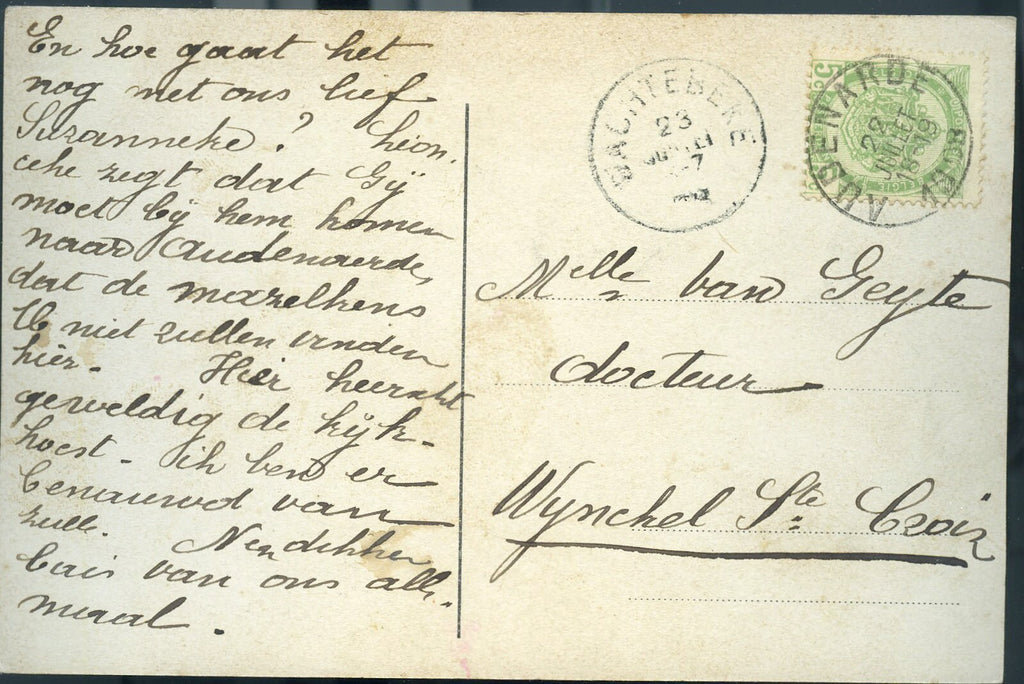 En hoe gaat het
nog met ons lief
Suzanneke? Léon.
ceke zegt dat Gÿ
moet bÿ hem komen
naar Audenaerde,
dat de mazelkens
U niet zullen vinden
hier. Hier heerscht
geweldig de kÿk-
hoest - ik ben er
benauwd van
zulle. Nen dikken
bais van ons alle-
maal.
BACHTEBEKE
23
JUILLET
7
AUDENARDE
22
JUILLET
18-19
Melle van Geyte
docteur
Wynckel Ste Croix